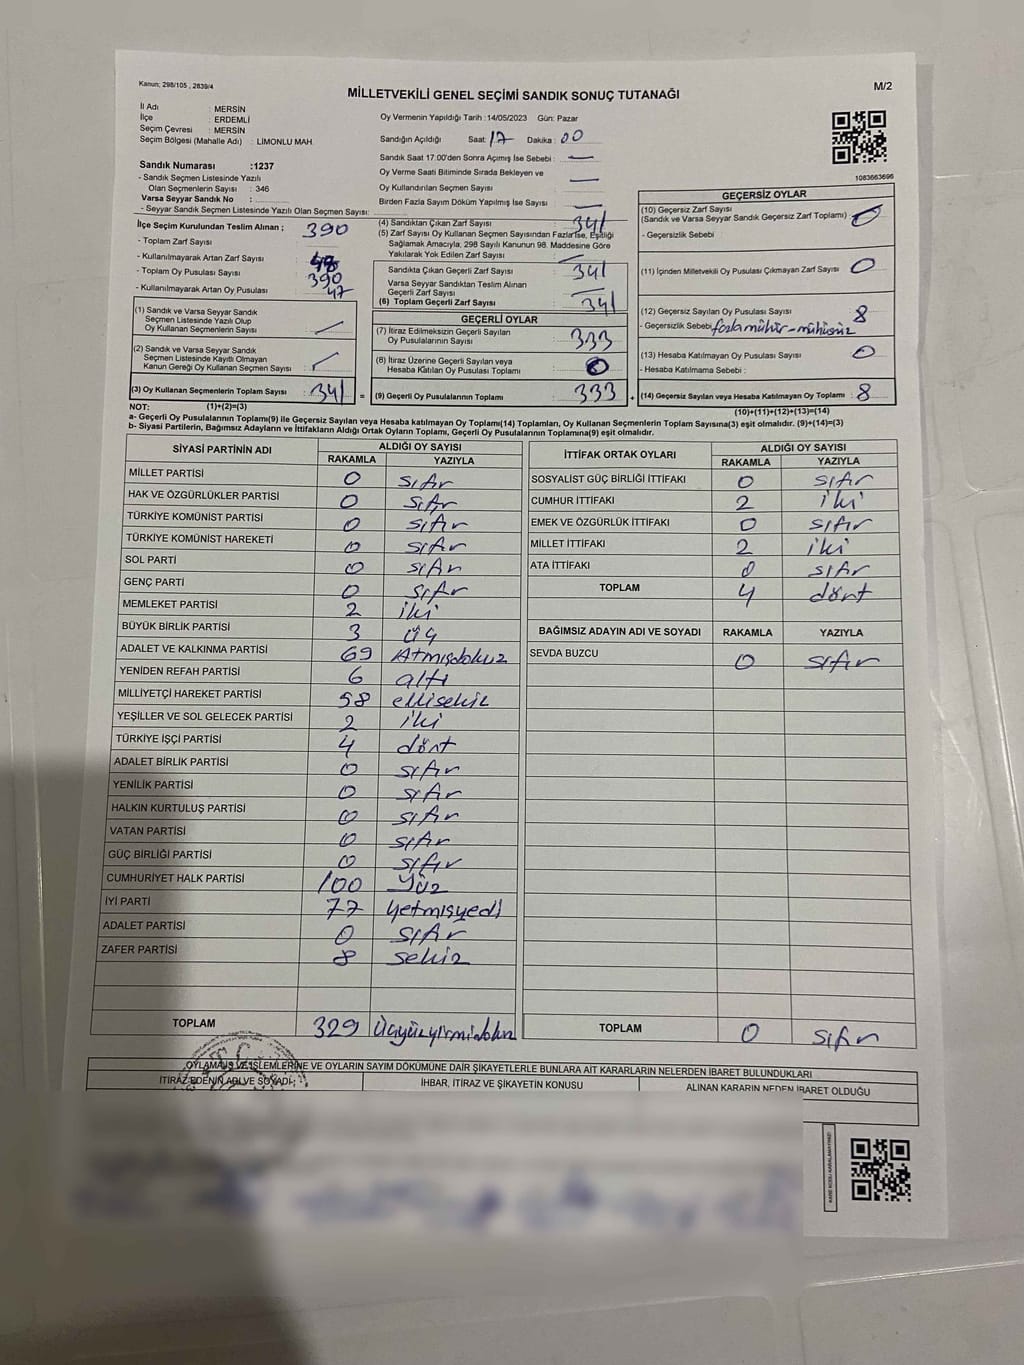 Kanun; 298/105 , 2839/4
M/2
MİLLETVEKİLİ GENEL SEÇİMİ SANDIK SONUÇ TUTANAĞI
İl Adı : MERSİN
İlçe : ERDEMLİ
Seçim Çevresi : MERSİN
Seçim Bölgesi (Mahalle Adı) : LİMONLU MAH.
Sandık Numarası :1237
- Sandık Seçmen Listesinde Yazılı
Olan Seçmenlerin Sayısı : 346
Varsa Seyyar Sandık No :
- Seyyar Sandık Seçmen Listesinde Yazılı Olan Seçmen Sayısı:
Oy Vermenin Yapıldığı Tarih :14/05/2023 Gün: Pazar
Sandığın Açıldığı Saat: 17 Dakika : 00
Sandık Saat 17.00'den Sonra Açımış İse Sebebi : —
Oy Verme Saati Bitiminde Sırada Bekleyen ve
Oy Kullandırılan Seçmen Sayısı —
Birden Fazla Sayım Döküm Yapılmış İse Sayısı —
1083663696
İlçe Seçim Kurulundan Teslim Alınan ;
- Toplam Zarf Sayısı : 390
- Kullanılmayarak Artan Zarf Sayısı :
- Toplam Oy Pusulası Sayısı : 390
- Kullanılmayarak Artan Oy Pusulası : 47
(1) Sandık ve Varsa Seyyar Sandık
Seçmen Listesinde Yazılı Olup
Oy Kullanan Seçmenlerin Sayısı : /
(2) Sandık ve Varsa Seyyar Sandık
Seçmen Listesinde Kayıtlı Olmayan
Kanun Gereği Oy Kullanan Seçmen Sayısı : /
(3) Oy Kullanan Seçmenlerin Toplam Sayısı : 341
(4) Sandıktan Çıkan Zarf Sayısı : 341
(5) Zarf Sayısı Oy Kullanan Seçmen Sayısından Fazla İse, Eşitliği
Sağlamak Amacıyla, 298 Sayılı Kanunun 98. Maddesine Göre
Yakılarak Yok Edilen Zarf Sayısı : —
Sandıkta Çıkan Geçerli Zarf Sayısı : 341
Varsa Seyyar Sandıktan Teslim Alınan
Geçerli Zarf Sayısı : —
(6) Toplam Geçerli Zarf Sayısı : 341
GEÇERLİ OYLAR
(7) İtiraz Edilmeksizin Geçerli Sayılan
Oy Pusulalarının Sayısı : 333
(8) İtiraz Üzerine Geçerli Sayılan veya
Hesaba Katılan Oy Pusulası Toplamı : 0
= (9) Geçerli Oy Pusulalarının Toplamı : 333
GEÇERSİZ OYLAR
(10) Geçersiz Zarf Sayısı
(Sandık ve Varsa Seyyar Sandık Geçersiz Zarf Toplamı) : 0
- Geçersizlik Sebebi :
(11) İçinden Milletvekili Oy Pusulası Çıkmayan Zarf Sayısı : 0
(12) Geçersiz Sayılan Oy Pusulası Sayısı : 8
- Geçersizlik Sebebi : fazla mühür - mühürsüz
(13) Hesaba Katılmayan Oy Pusulası Sayısı : 0
- Hesaba Katılmama Sebebi :
+ (14) Geçersiz Sayılan veya Hesaba Katılmayan Oy Toplamı : 8
NOT: (1)+(2)=(3)
(10)+(11)+(12)+(13)=(14)
a- Geçerli Oy Pusulalarının Toplamı(9) ile Geçersiz Sayılan veya Hesaba Katılmayan Oy Toplamı(14) Toplamları, Oy Kullanan Seçmenlerin Toplam Sayısına(3) eşit olmalıdır. (9)+(14)=(3)
b- Siyasi Partilerin, Bağımsız Adayların ve İttifakların Aldığı Ortak Oyların Toplamı, Geçerli Oy Pusulalarının Toplamına(9) eşit olmalıdır.
SİYASİ PARTİNİN ADI ALDIĞI OY SAYISI
RAKAMLA YAZIYLA
MİLLET PARTİSİ 0 sıfır
HAK VE ÖZGÜRLÜKLER PARTİSİ 0 sıfır
TÜRKİYE KOMÜNİST PARTİSİ 0 sıfır
TÜRKİYE KOMÜNİST HAREKETİ 0 sıfır
SOL PARTİ 0 sıfır
GENÇ PARTİ 0 sıfır
MEMLEKET PARTİSİ 2 iki
BÜYÜK BİRLİK PARTİSİ 3 üç
ADALET VE KALKINMA PARTİSİ 69 Atmışdokuz
YENİDEN REFAH PARTİSİ 6 altı
MİLLİYETÇİ HAREKET PARTİSİ 58 ellisekiz
YEŞİLLER VE SOL GELECEK PARTİSİ 2 iki
TÜRKİYE İŞÇİ PARTİSİ 4 dört
ADALET BİRLİK PARTİSİ 0 sıfır
YENİLİK PARTİSİ 0 sıfır
HALKIN KURTULUŞ PARTİSİ 0 sıfır
VATAN PARTİSİ 0 sıfır
GÜÇ BİRLİĞİ PARTİSİ 0 sıfır
CUMHURİYET HALK PARTİSİ 100 Yüz
İYİ PARTİ 77 yetmişyedi
ADALET PARTİSİ 0 sıfır
ZAFER PARTİSİ 8 sekiz
TOPLAM 329 üçyüzyirmidokuz
İTTİFAK ORTAK OYLARI ALDIĞI OY SAYISI
RAKAMLA YAZIYLA
SOSYALİST GÜÇ BİRLİĞİ İTTİFAKI 0 sıfır
CUMHUR İTTİFAKI 2 iki
EMEK VE ÖZGÜRLÜK İTTİFAKI 0 sıfır
MİLLET İTTİFAKI 2 iki
ATA İTTİFAKI 0 sıfır
TOPLAM 4 dört
BAĞIMSIZ ADAYIN ADI VE SOYADI RAKAMLA YAZIYLA
SEVDA BUZCU 0 sıfır
TOPLAM 0 sıfır
OYLAMA İŞ VE İŞLEMLERİNE VE OYLARIN SAYIM DÖKÜMÜNE DAİR ŞİKAYETLERLE BUNLARA AİT KARARLARIN NELERDEN İBARET BULUNDUKLARI
İTİRAZ EDENİN ADI VE SOYADI İHBAR, İTİRAZ VE ŞİKAYETİN KONUSU ALINAN KARARIN NEDEN İBARET OLDUĞU